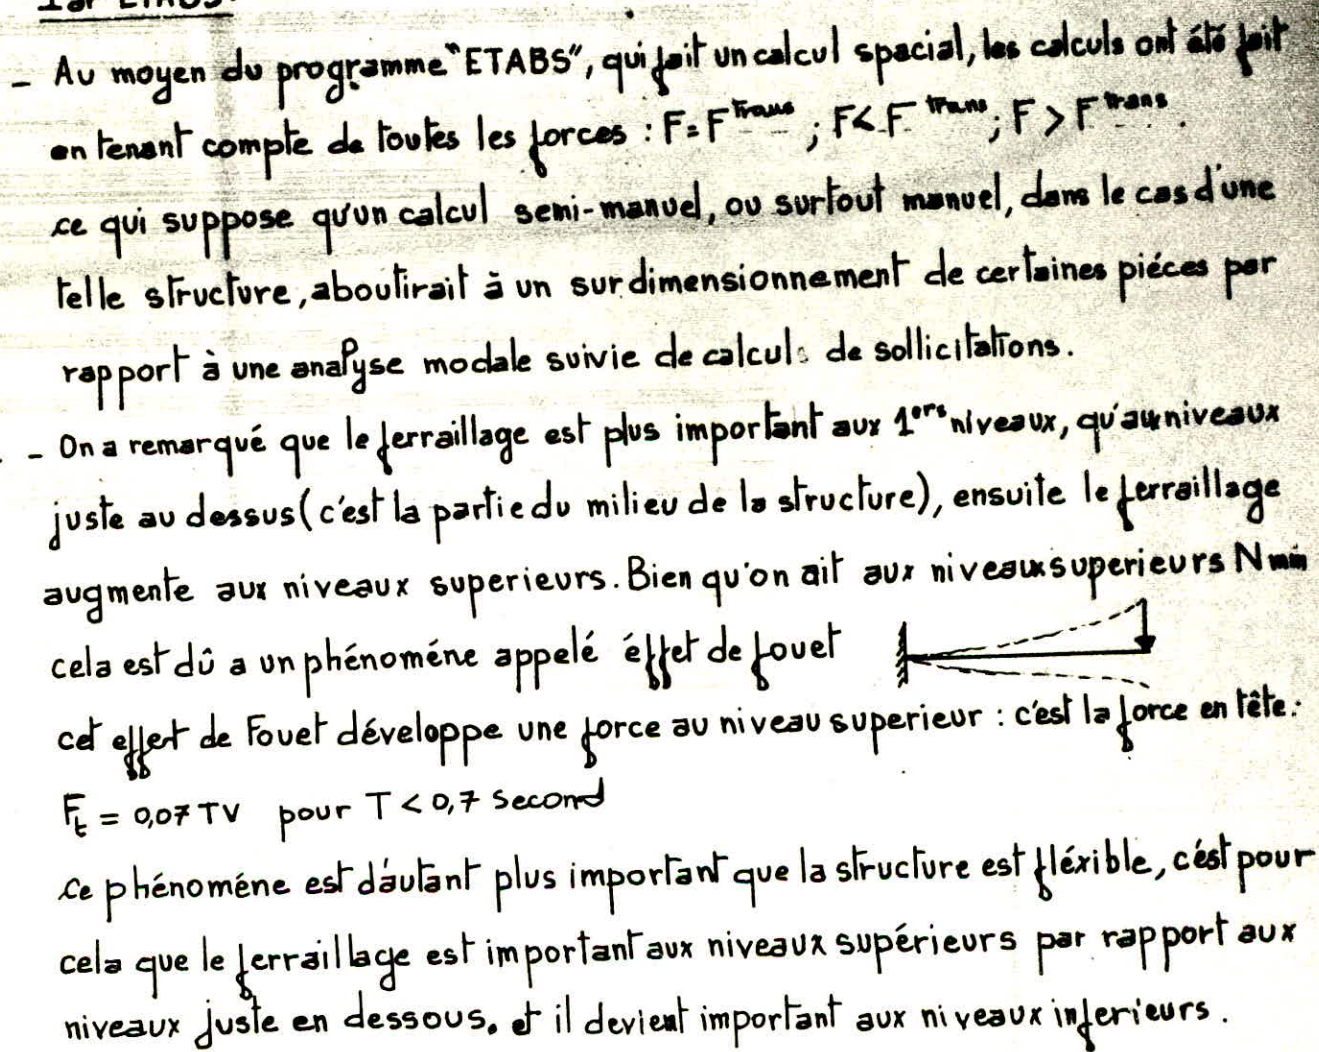 Par ETABS.
- Au moyen du programme "ETABS", qui fait un calcul spacial, les calculs ont été fait
en tenant compte de toutes les forces : F = F^trans ; F < F^trans ; F > F^trans.
ce qui suppose qu'un calcul semi-manuel, ou surtout manuel, dans le cas d'une
telle structure, aboutirait à un surdimensionnement de certaines piéces par
rapport à une analyse modale suivie de calculs de sollicitations.
- On a remarqué que le ferraillage est plus important aux 1ers niveaux, qu'aux niveaux
juste au dessus (c'est la partie du milieu de la structure), ensuite le ferraillage
augmente aux niveaux superieurs. Bien qu'on ait aux niveaux superieurs N min
cela est dû a un phénoméne appelé éffet de fouet
cet effet de Fouet développe une force au niveau superieur : c'est la force en tête.
Ft = 0,07 TV pour T < 0,7 Second
ce phénoméne est d'autant plus important que la structure est fléxible, c'ést pour
cela que le ferraillage est important aux niveaux supérieurs par rapport aux
niveaux juste en dessous. et il devient important aux niveaux inferieurs.